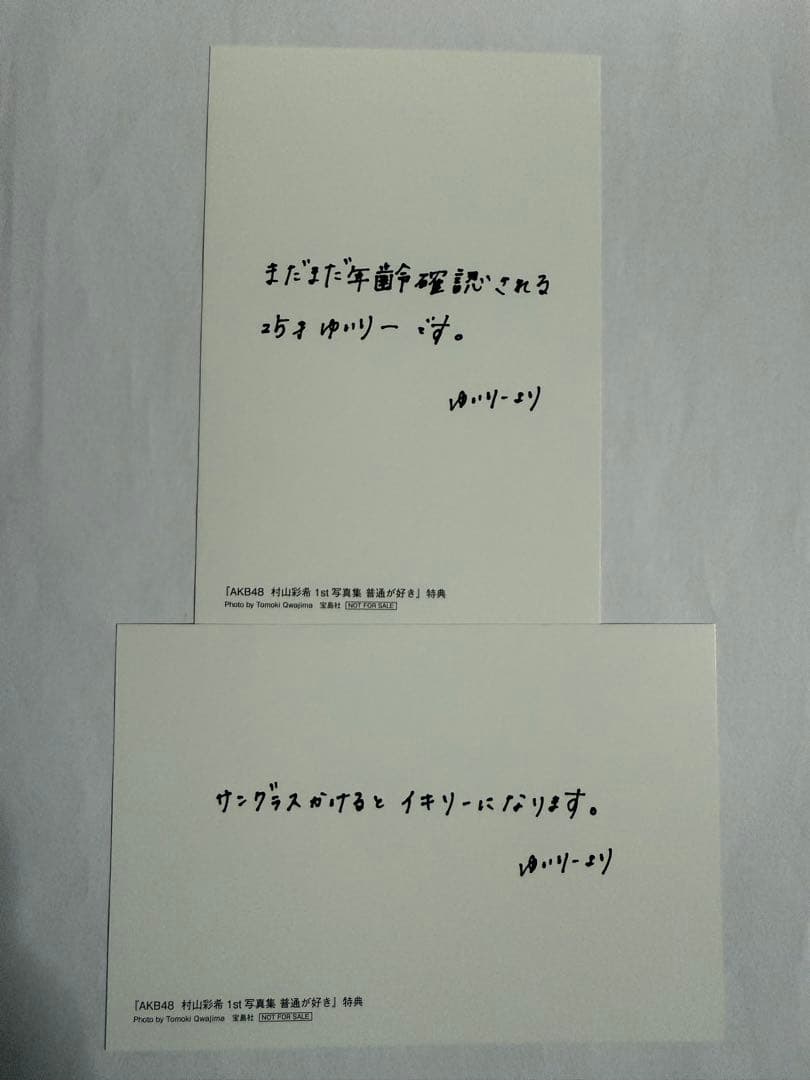 まだまだ年齢確認される
25才ゆいりーです。
ゆいりーより
『AKB48 村山彩希 1st写真集 普通が好き』特典
Photo by Tomoki Qwajima 宝島社 NOT FOR SALE
サングラスかけるとイキリーになります。
ゆいりーより
『AKB48 村山彩希 1st写真集 普通が好き』特典
Photo by Tomoki Qwajima 宝島社 NOT FOR SALE